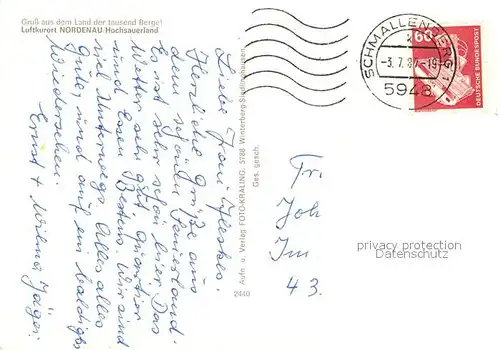 Gruß aus dem Land der tausend Berge!
Luftkurort NORDENAU Hochsauerland
Liebe Frau
Herzliche Grüße aus
dem schönen Sauerland.
Es ist sehr schön hier. Das
Wetter sehr gut, Quartier
und Essen Bestens. Wir sind
viel Unterwegs. Alles alles
Gute, und auf ein baldiges
Wiedersehen.
Ernst + Wilma Jäger.
Aufn. u. Verlag FOTO-KRALING, 5788 Winterberg-Siedlinghausen
Ges. gesch.
2440
SCHMALLENBERG 1
-3.7.87-19
5948
60
DEUTSCHE BUNDESPOST
Fr.
Joh
Im
43.
privacy protection
Datenschutz